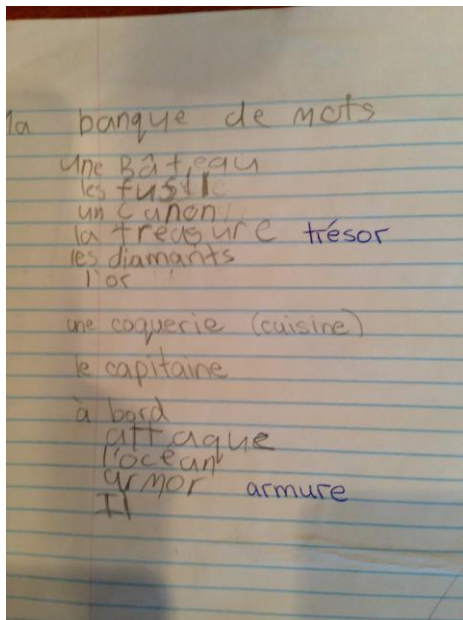 la banque de mots
une Bâteau
les fusil
un canon
la treasure trésor
les diamants
l'or
une coquerie (cuisine)
le capitaine
à bord
attaque
l'océan
armor armure
Il